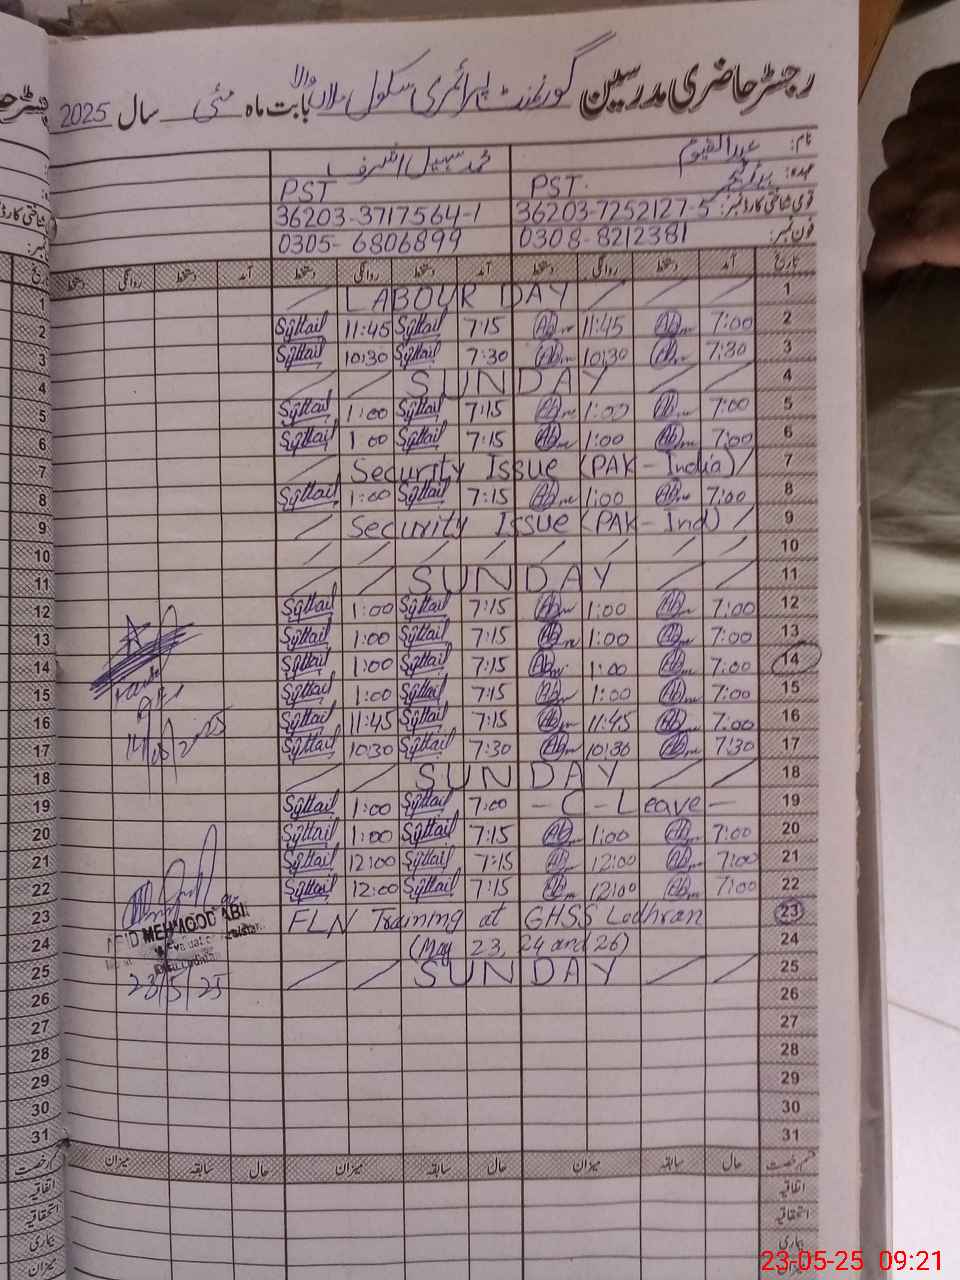 رجسٹر حاضری مدرسین گورنمنٹ پرائمری سکول ملاں والا بابت ماہ مئی سال 2025
نام: عبدالقیوم محمد سہیل اشرف
عہدہ: PST PST
قومی شناختی کارڈ نمبر: 36203-7252127-5 36203-3717564-1
فون نمبر: 0308-8212381 0305-6806899
تاریخ آمد دستخط روانگی دستخط آمد دستخط روانگی دستخط آمد دستخط روانگی دستخط
1 LABOUR DAY
2 7:00 11:45 7:15 Sohail 11:45 Sohail
3 7:30 10:30 7:30 Sohail 10:30 Sohail
4 SUNDAY
5 7:00 1:00 7:15 Sohail 1:00 Sohail
6 7:00 1:00 7:15 Sohail 1:00 Sohail
7 Security Issue (PAK-India)
8 7:00 1:00 7:15 Sohail 1:00 Sohail
9 Security Issue (PAK-Ind)
10
11 SUNDAY
12 7:00 1:00 7:15 Sohail 1:00 Sohail
13 7:00 1:00 7:15 Sohail 1:00 Sohail
14 7:00 1:00 7:15 Sohail 1:00 Sohail
15 7:00 1:00 7:15 Sohail 1:00 Sohail
16 7:00 11:45 7:15 Sohail 11:45 Sohail
17 7:30 10:30 7:30 Sohail 10:30 Sohail
18 SUNDAY
19 -C-Leave- 7:00 Sohail 1:00 Sohail
20 7:00 1:00 7:15 Sohail 1:00 Sohail
21 7:00 12:00 7:15 Sohail 12:00 Sohail
22 7:00 12:00 7:15 Sohail 12:00 Sohail
23 FLN Training at GHSS Lodhran
24 (May 23, 24 and 26)
25 SUNDAY
MEHMOOD ABI
23/5/25
26
27
28
29
30
31
حال سابقہ میزان حال سابقہ میزان حال سابقہ میزان
اتفاقیہ
استحقاقیہ
بیماری
میزان
23-05-25 09:21